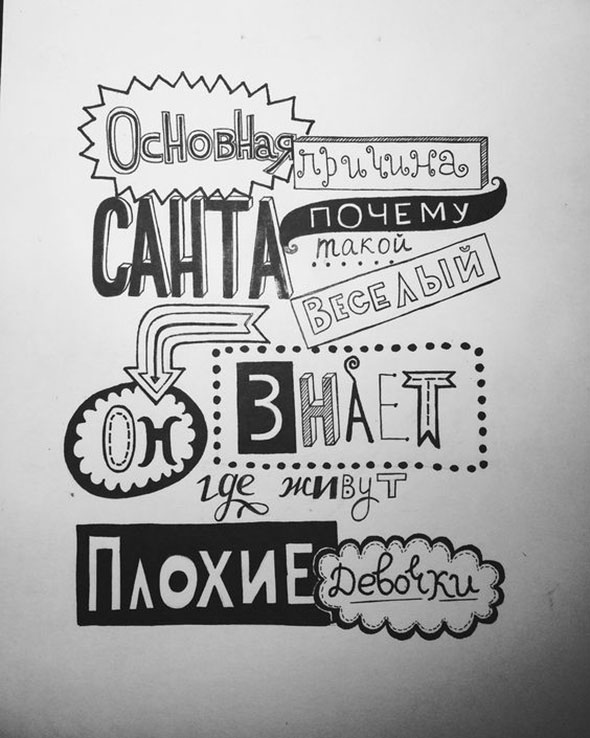 Основная причина
САНТА ПОЧЕМУ
такой
Веселый
Он ЗНАЕТ
где живут
Плохие Девочки